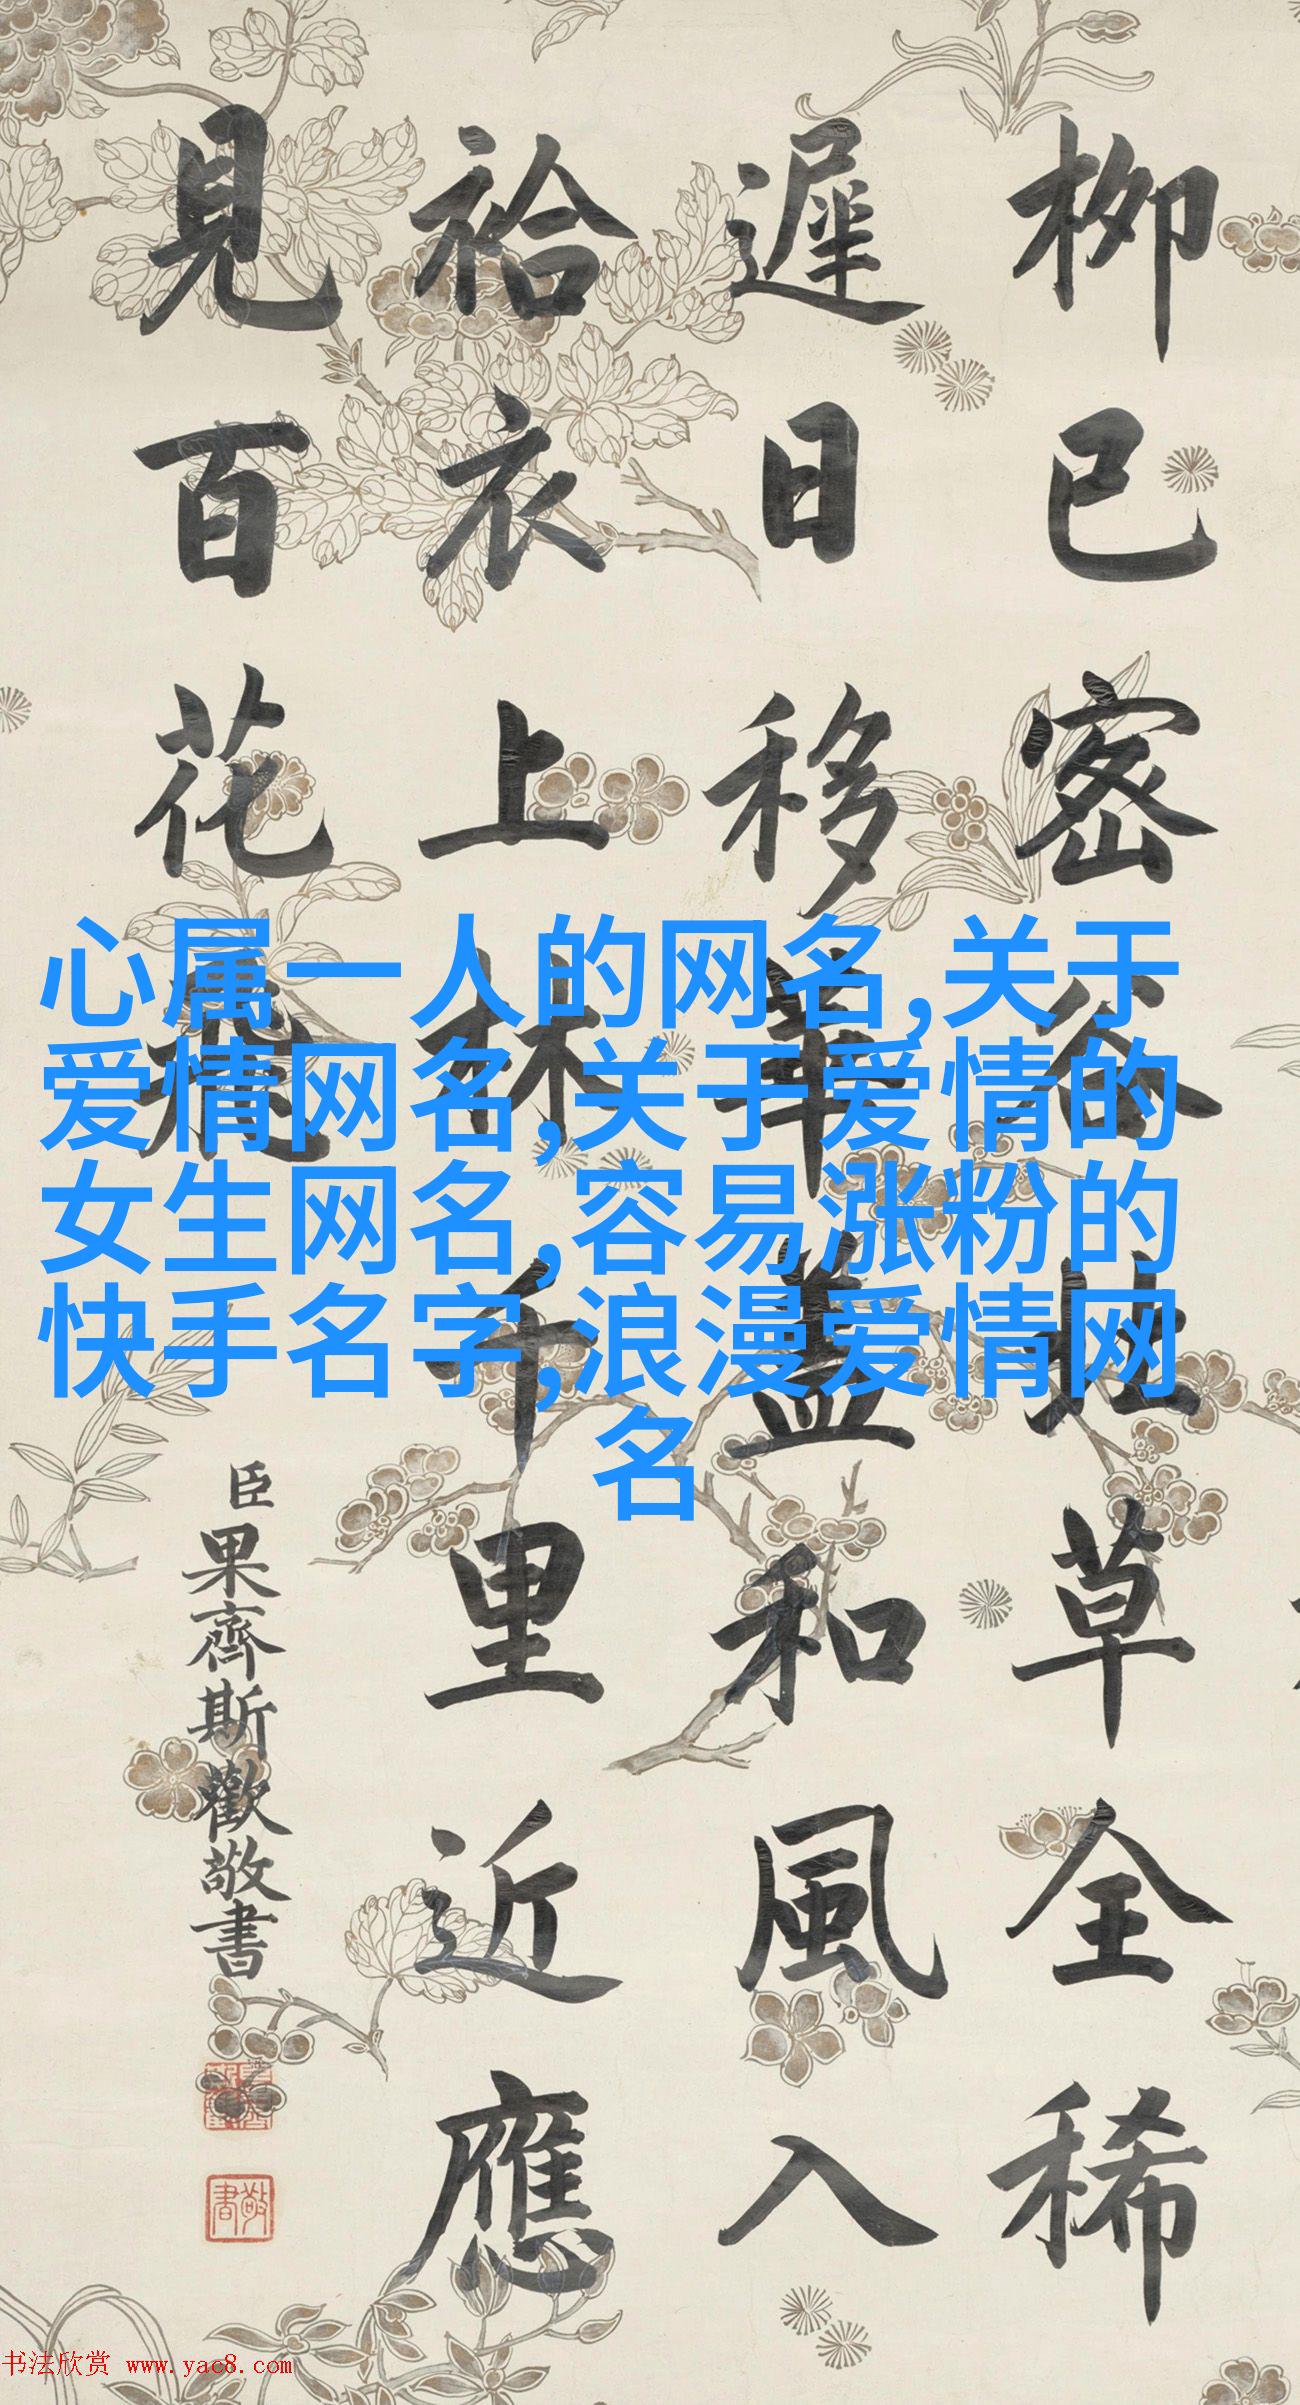 柳已密草全稀
遲日移華蓋和風入
袷衣上林千里近應
見百花飛
臣果齊斯歡敬書
敬書
心属一人的网名,关于
爱情网名,关于爱情的
女生网名,容易涨粉的
快手名字,浪漫爱情网
名
书法欣赏 www.yac8.com